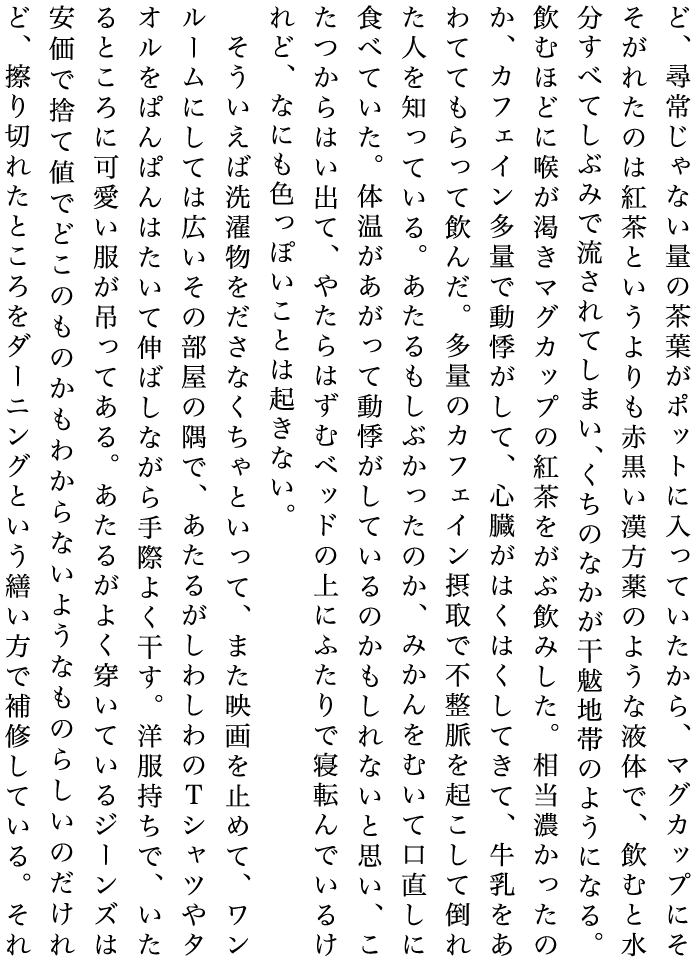 ど、尋常じゃない量の茶葉がポットに入っていたから、マグカップにそ
そがれたのは紅茶というよりも赤黒い漢方薬のような液体で、飲むと水
分すべてしぶみで流されてしまい、くちのなかが干魃地帯のようになる。
飲むほどに喉が渇きマグカップの紅茶をがぶ飲みした。相当濃かったの
か、カフェイン多量で動悸がして、心臓がはくはくしてきて、牛乳をあ
わててもらって飲んだ。多量のカフェイン摂取で不整脈を起こして倒れ
た人を知っている。あたるもしぶかったのか、みかんをむいて口直しに
食べていた。体温があがって動悸がしているのかもしれないと思い、こ
たつからはい出て、やたらはずむベッドの上にふたりで寝転んでいるけ
れど、なにも色っぽいことは起きない。
そういえば洗濯物をださなくちゃといって、また映画を止めて、ワン
ルームにしては広いその部屋の隅で、あたるがしわしわのTシャツやタ
オルをぱんぱんはたいて伸ばしながら手際よく干す。洋服持ちで、いた
るところに可愛い服が吊ってある。あたるがよく穿いているジーンズは
安価で捨て値でどこのものかもわからないようなものらしいのだけれ
ど、擦り切れたところをダーニングという繕い方で補修している。それ